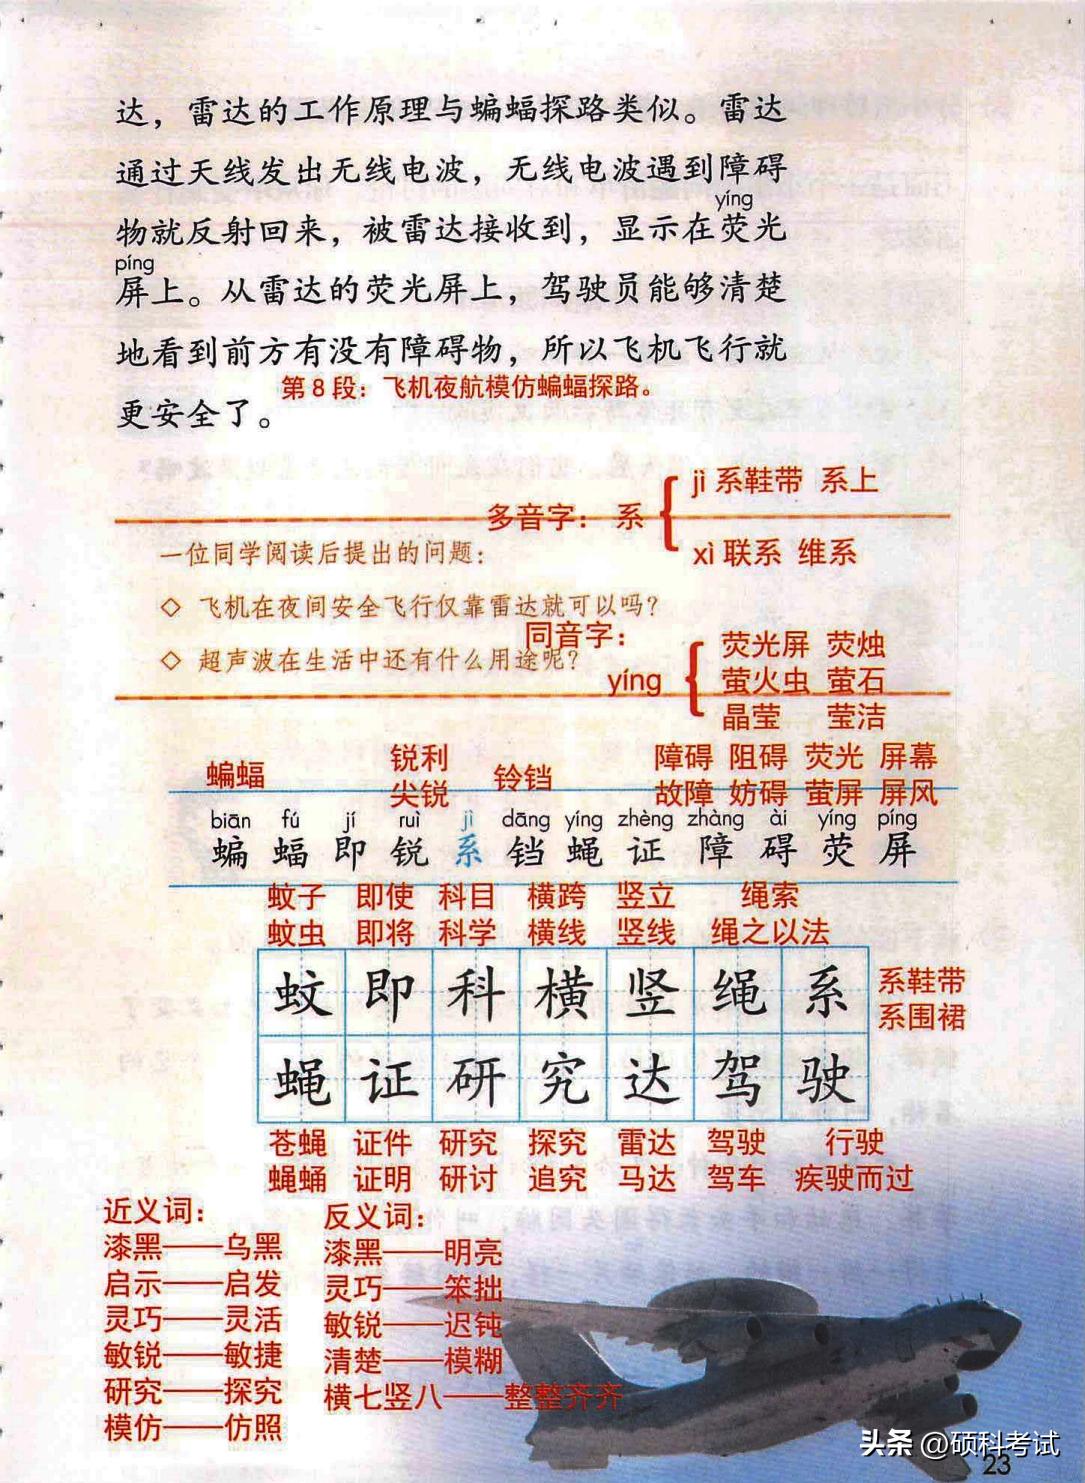 达，雷达的工作原理与蝙蝠探路类似。雷达
通过天线发出无线电波，无线电波遇到障碍
yíng
物就反射回来，被雷达接收到，显示在荧光
píng
屏上。从雷达的荧光屏上，驾驶员能够清楚
地看到前方有没有障碍物，所以飞机飞行就
第8段：飞机夜航模仿蝙蝠探路。
更安全了。
jì 系鞋带 系上
多音字： 系
xì 联系 维系
一位同学阅读后提出的问题：
◇ 飞机在夜间安全飞行仅靠雷达就可以吗？
同音字：
◇ 超声波在生活中还有什么用途呢？
yíng
荧光屏 荧烛
萤火虫 萤石
晶莹 莹洁
蝙蝠 锐利 铃铛 障碍 阻碍 荧光 屏幕
尖锐 故障 妨碍 萤屏 屏风
biān fú jí ruì jì dāng yíng zhèng zhàng ài yíng píng
蝙 蝠 即 锐 系 铛 蝇 证 障 碍 荧 屏
蚊子 即使 科目 横跨 竖立 绳索
蚊虫 即将 科学 横线 竖线 绳之以法
蚊 即 科 横 竖 绳 系
系鞋带
系围裙
蝇 证 研 究 达 驾 驶
苍蝇 证件 研究 探究 雷达 驾驶 行驶
蝇蛹 证明 研讨 追究 马达 驾车 疾驶而过
近义词：
漆黑——乌黑
启示——启发
灵巧——灵活
敏锐——敏捷
研究——探究
模仿——仿照
反义词：
漆黑——明亮
灵巧——笨拙
敏锐——迟钝
清楚——模糊
横七竖八——整整齐齐
头条 @硕科考试
23